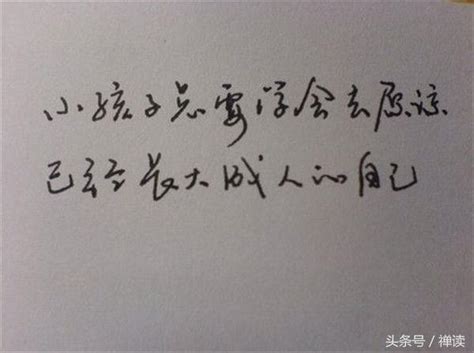 小孩子总要学会去原谅
已经长大成人的自己
头条号／禅读